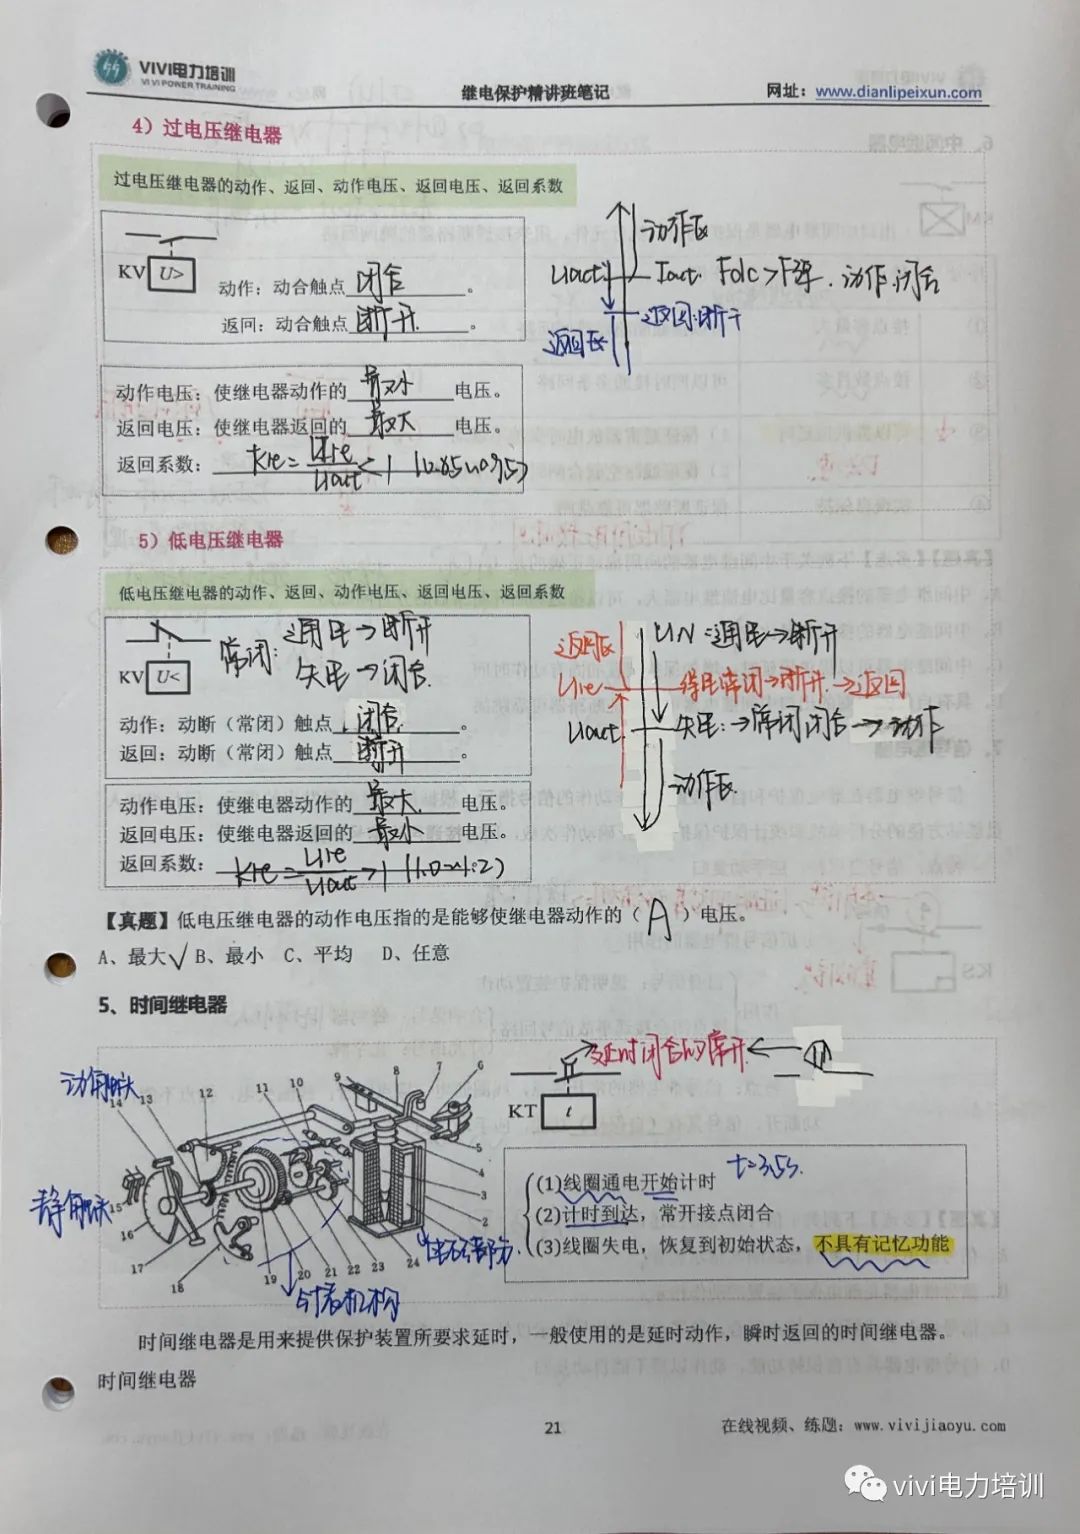 VIVI电力培训
VIVI POWER TRAINING
继电保护精讲班笔记
网址：www.dianlipeixun.com
4）过电压继电器
过电压继电器的动作、返回、动作电压、返回电压、返回系数
KV U>
动作：动合触点 闭合 。
返回：动合触点 断开 。
动作区
Uact Fact. Fdc>F弹. 动作.闭合
返回:断开
返回区
动作电压：使继电器动作的 最小 电压。
返回电压：使继电器返回的 最大 电压。
返回系数： Kre=Ure/Uact<1 (0.85~0.95)
5）低电压继电器
低电压继电器的动作、返回、动作电压、返回电压、返回系数
常闭: 通电→断开
失电→闭合.
KV U<
动作：动断（常闭）触点 闭合 。
返回：动断（常闭）触点 断开 。
返回区 UN:通电→断开
Ure 得电常闭→断开.→返回
Uact 失电:→常闭闭合→动作
动作区.
动作电压：使继电器动作的 最大 电压。
返回电压：使继电器返回的 最小 电压。
返回系数： Kre=Ure/Uact>1 (1.0~1.2)
【真题】低电压继电器的动作电压指的是能够使继电器动作的（ A ）电压。
A、最大√ B、最小 C、平均 D、任意
5、时间继电器
延时闭合的常开
KT t
动触头
静触头
14 13 12 11 10 9 8 7 6
5
4
3
2
1
15
16
17
18
19 20 21 22 23 24
电磁部分
钟表机构
t=3.5s.
(1)线圈通电开始计时
(2)计时到达，常开接点闭合
(3)线圈失电，恢复到初始状态，不具有记忆功能
时间继电器是用来提供保护装置所要求延时，一般使用的是延时动作，瞬时返回的时间继电器。
时间继电器
21
在线视频、练题：www.vivijiaoyu.com
vivi电力培训